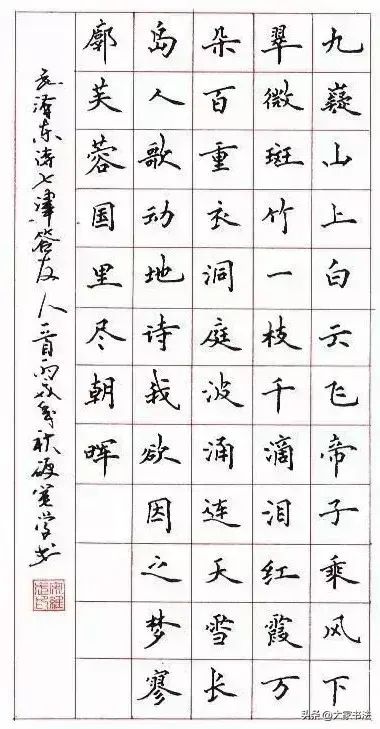 九嶷山上白云飞帝子乘风下
翠微斑竹一枝千滴泪红霞万
朵百重衣洞庭波涌连天雪长
岛人歌动地诗我欲因之梦寥
廓芙蓉国里尽朝晖
毛泽东诗七律答友人一首丙戌年秋学书
头条@大家书法